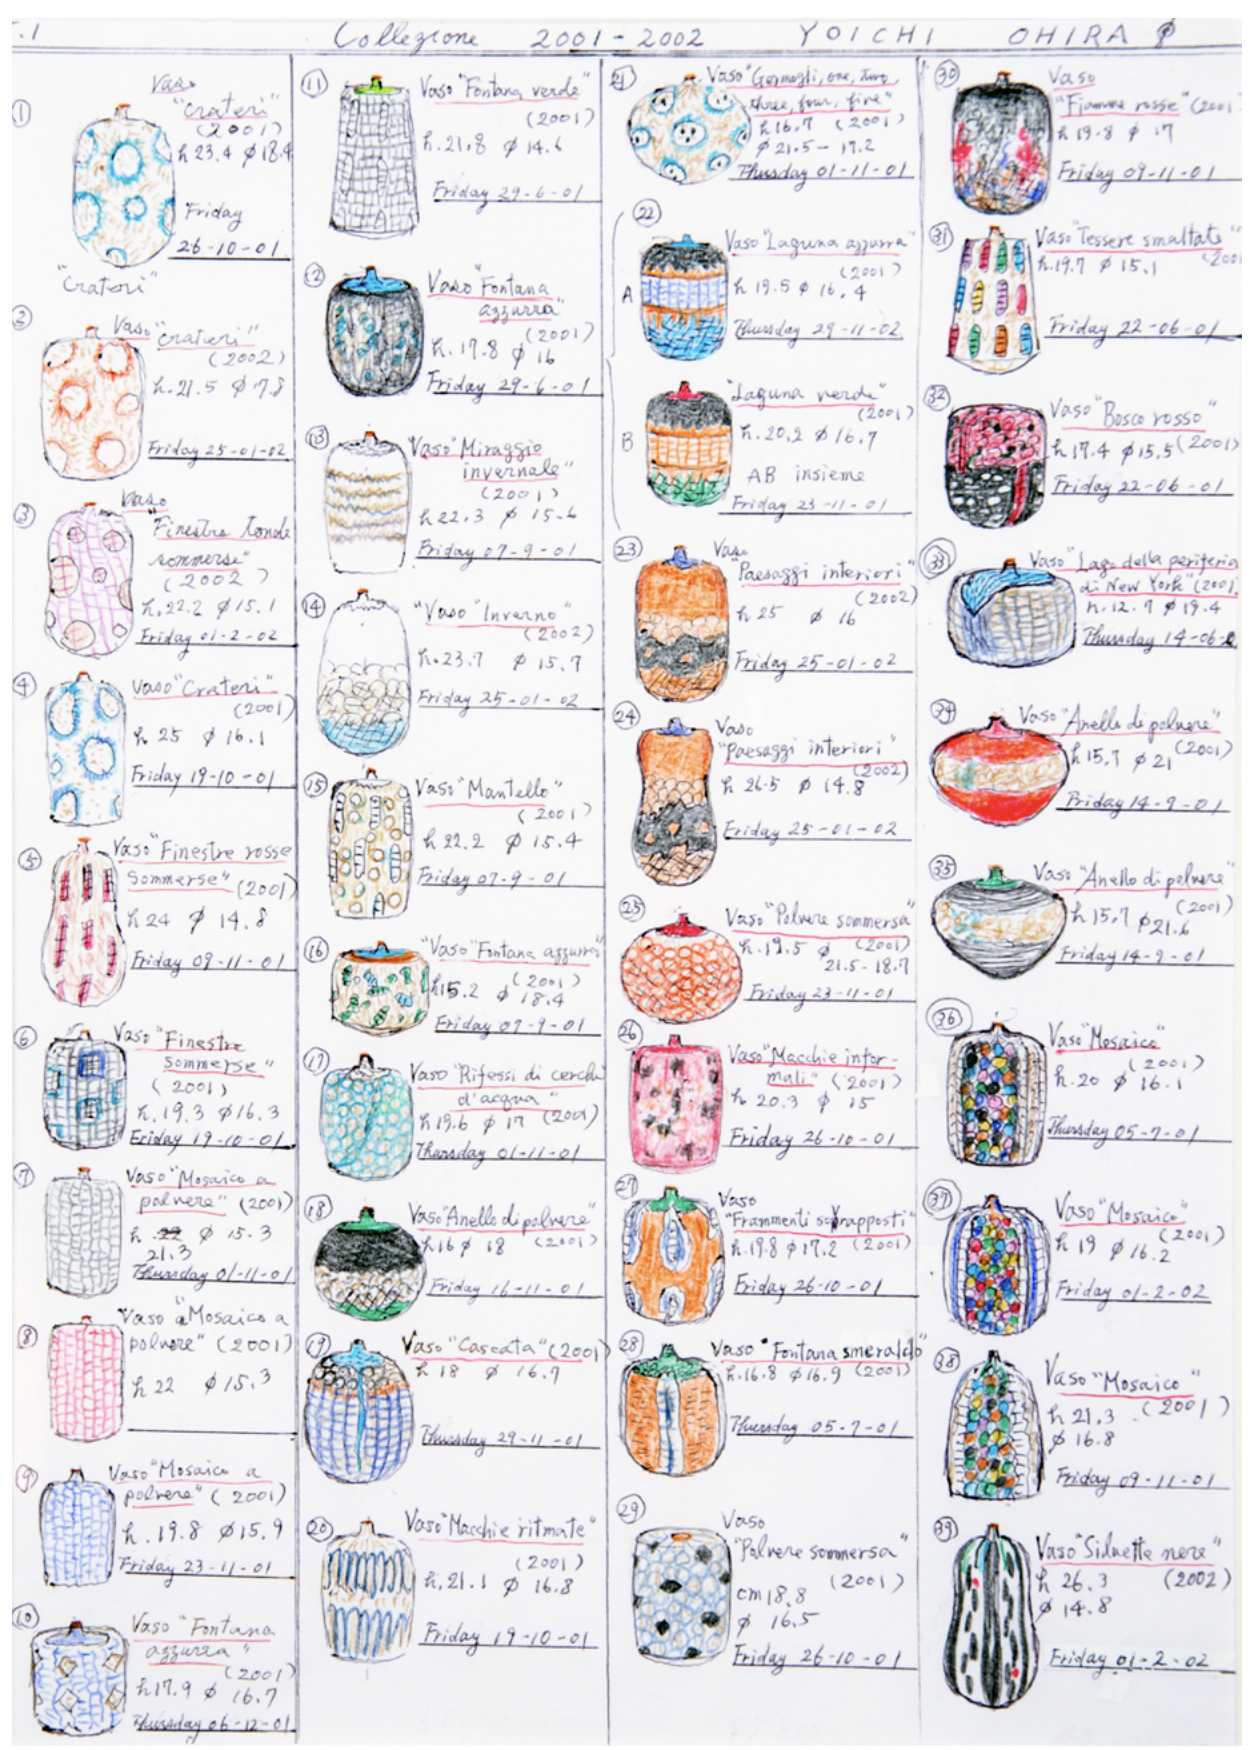 F.1 Collezione 2001-2002 YOICHI OHIRA
①
Vaso
"Crateri"
(2001)
h 23.4 ø 18.4
Friday
26-10-01
"Crateri"
②
Vaso "Crateri"
(2002)
h. 21.5 ø 17.8
Friday 25-01-02
③
Vaso
"Finestre tonde
sommerse"
(2002)
h. 22.2 ø 15.1
Friday 01-2-02
④
Vaso "Crateri"
(2001)
h 25 ø 16.1
Friday 19-10-01
⑤
Vaso "Finestre rosse
Sommerse" (2001)
h 24 ø 14.8
Friday 09-11-01
⑥
Vaso "Finestre
sommerse"
(2001)
h. 19.3 ø 16.3
Friday 19-10-01
⑦
Vaso "Mosaico a
polvere" (2001)
h. ø 15.3
21.3
Thursday 01-11-01
⑧
Vaso "Mosaico a
polvere" (2001)
h 22 ø 15.3
⑨
Vaso "Mosaico a
polvere" (2001)
h. 19.8 ø 15.9
Friday 23-11-01
⑩
Vaso "Fontana
azzurra"
(2001)
h 17.9 ø 16.7
Thursday 06-12-01
⑪
Vaso "Fontana verde"
(2001)
h. 21.8 ø 14.6
Friday 29-6-01
⑫
Vaso "Fontana
azzurra"
(2001)
h. 17.8 ø 16
Friday 29-6-01
⑬
Vaso "Miraggio
invernale"
(2001)
h 22.3 ø 15.6
Friday 07-9-01
⑭
"Vaso "Inverno"
(2002)
h. 23.7 ø 15.7
Friday 25-01-02
⑮
Vaso "Mantello"
(2001)
h 22.2 ø 15.4
Friday 07-9-01
⑯
"Vaso "Fontana azzurra"
(2001)
h 15.2 ø 18.4
Friday 07-9-01
⑰
Vaso "Riflessi di cerchi
d'acqua"
h 19.6 ø 17 (2001)
Thursday 01-11-01
⑱
Vaso "Anello di polvere"
h 16 ø 18 (2001)
Friday 16-11-01
⑲
Vaso "Cascata" (2001)
h 18 ø 16.9
Thursday 29-11-01
⑳
Vaso "Macchie ritmate"
(2001)
h. 21.1 ø 16.8
Friday 19-10-01
㉑
Vaso "Germogli, one, two,
three, four, five"
h 16.7 (2001)
ø 21.5-17.2
Thursday 01-11-01
㉒
A
Vaso "Laguna azzurra"
(2001)
h 19.5 ø 16.4
Thursday 29-11-02
B
"Laguna verde"
(2001)
h. 20.2 ø 16.7
AB insieme
Friday 23-11-01
㉓
Vaso
"Paesaggi interiori"
(2002)
h 25 ø 16
Friday 25-01-02
㉔
Vaso
"Paesaggi interiori"
(2002)
h 26.5 ø 14.8
Friday 25-01-02
㉕
Vaso "Polvere sommersa"
h. 19.5 ø (2001)
21.5-18.7
Friday 23-11-01
㉖
Vaso "Macchie infor-
mali" (2001)
h 20.3 ø 15
Friday 26-10-01
㉗
Vaso
"Frammenti sovrapposti"
h. 19.8 ø 17.2 (2001)
Friday 26-10-01
㉘
Vaso "Fontana smeraldo"
h. 16.8 ø 16.9 (2001)
Thursday 05-7-01
㉙
Vaso
"Polvere sommersa"
(2001)
cm 18.8
ø 16.5
Friday 26-10-01
㉚
Vaso
"Fiamme rosse" (2001)
h 19.8 ø 17
Friday 09-11-01
㉛
Vaso "Tessere smaltate"
h. 19.7 ø 15.1 (2001
Friday 22-06-01
㉜
Vaso "Bosco rosso"
h 17.4 ø 15.5 (2001)
Friday 22-06-01
㉝
Vaso "Lago della periferia
di New York" (2001)
h. 12.9 ø 19.4
Thursday 14-06-
㉞
Vaso "Anello di polvere"
h 15.7 ø 21 (2001)
Friday 14-9-01
㉟
Vaso "Anello di polvere"
h 15.7 ø 21.6 (2001)
Friday 14-9-01
㊱
Vaso "Mosaico"
(2001)
h. 20 ø 16.1
Thursday 05-7-01
㊲
Vaso "Mosaico"
(2001)
h 19 ø 16.2
Friday 01-2-02
㊳
Vaso "Mosaico"
h 21.3 (2001)
ø 16.8
Friday 09-11-01
㊴
Vaso "Siluette nere"
h 26.3 (2002)
ø 14.8
Friday 01-2-02